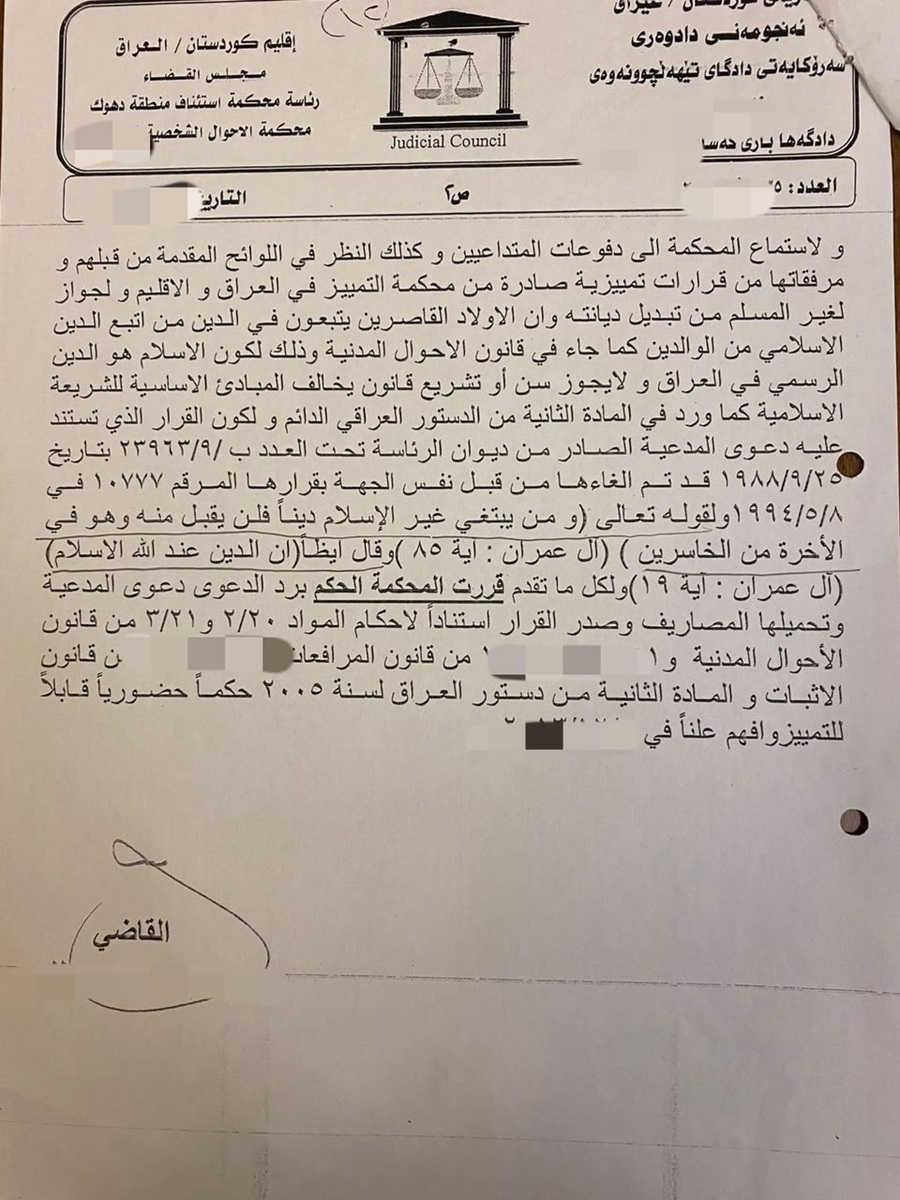 (١٢)
إقليم كوردستان / العراق
مجلس القضاء
رئاسة محكمة استئناف منطقة دهوك
محكمة الاحوال الشخصية
Judicial Council
ئەنجومەنی دادوەری
سەرۆکایەتی دادگای تێهەڵچوونەوەی
دادگەها باری
العدد:
ص٢
التاريخ
و لاستماع المحكمة الى دفوعات المتداعيين و كذلك النظر في اللوائح المقدمة من قبلهم و
مرفقاتها من قرارات تمييزية صادرة من محكمة التمييز في العراق و الاقليم و لجواز
لغير المسلم من تبديل ديانته وان الاولاد القاصرين يتبعون في الدين من اتبع الدين
الاسلامي من الوالدين كما جاء في قانون الاحوال المدنية وذلك لكون الاسلام هو الدين
الرسمي في العراق و لايجوز سن أو تشريع قانون يخالف المبادئ الاساسية للشريعة
الاسلامية كما ورد في المادة الثانية من الدستور العراقي الدائم و لكون القرار الذي تستند
عليه دعوى المدعية الصادر من ديوان الرئاسة تحت العدد ب /٢٣٩٦٣/٩ بتاريخ
١٩٨٨/٩/٢٥ قد تم الغاءها من قبل نفس الجهة بقرارها المرقم ١٠٧٧٧ في
١٩٩٤/٥/٨ولقوله تعالى (و من يبتغي غير الإسلام ديناً فلن يقبل منه وهو في
الأخرة من الخاسرين ) (آل عمران : اية ٨٥ )وقال ايظاً(ان الدين عند الله الاسلام)
(آل عمران : آية ١٩)ولكل ما تقدم قررت المحكمة الحكم برد الدعوى دعوى المدعية
وتحميلها المصاريف وصدر القرار استناداً لاحكام المواد ٢/٢٠ و٣/٢١ من قانون
الأحوال المدنية و١ من قانون المرافعات ن قانون
الاثبات و المادة الثانية من دستور العراق لسنة ٢٠٠٥ حكماً حضورياً قابلاً
للتمييزوافهم علناً في
القاضي